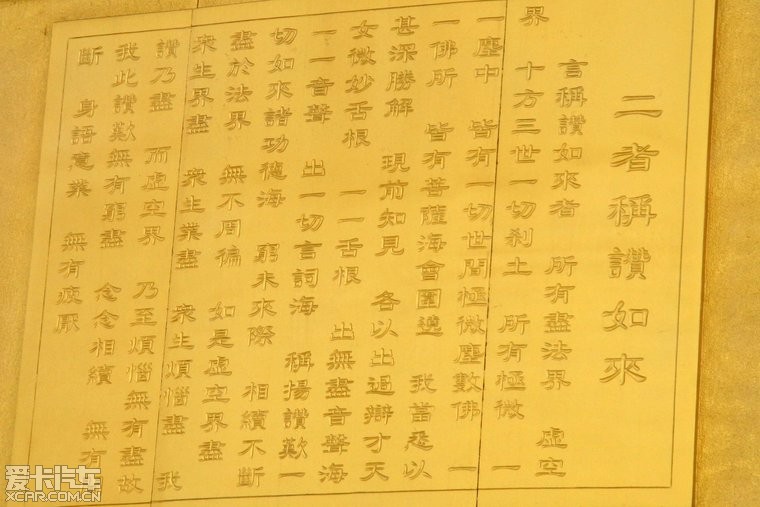 二者稱讚如來
言稱讚如來者 所有盡法界 虛空
界 十方三世一切剎土 所有極微 一
一塵中 皆有一切世間極微塵數佛 一
一佛所 皆有菩薩海會圍遶 我當悉以
甚深勝解 現前知見 各以出過辯才天
女微妙舌根 一一舌根 出無盡音聲海
一一音聲 出一切言詞海 稱揚讚歎一
切如來諸功德海 窮未來際 相續不斷
盡於法界 無不周徧 如是虛空界盡
眾生界盡 眾生業盡 眾生煩惱盡 我
讚乃盡 而虛空界 乃至煩惱無有盡故
我此讚歎無有窮盡 念念相續 無有
斷 身語意業 無有疲厭
爱卡汽车
XCAR.COM.CN